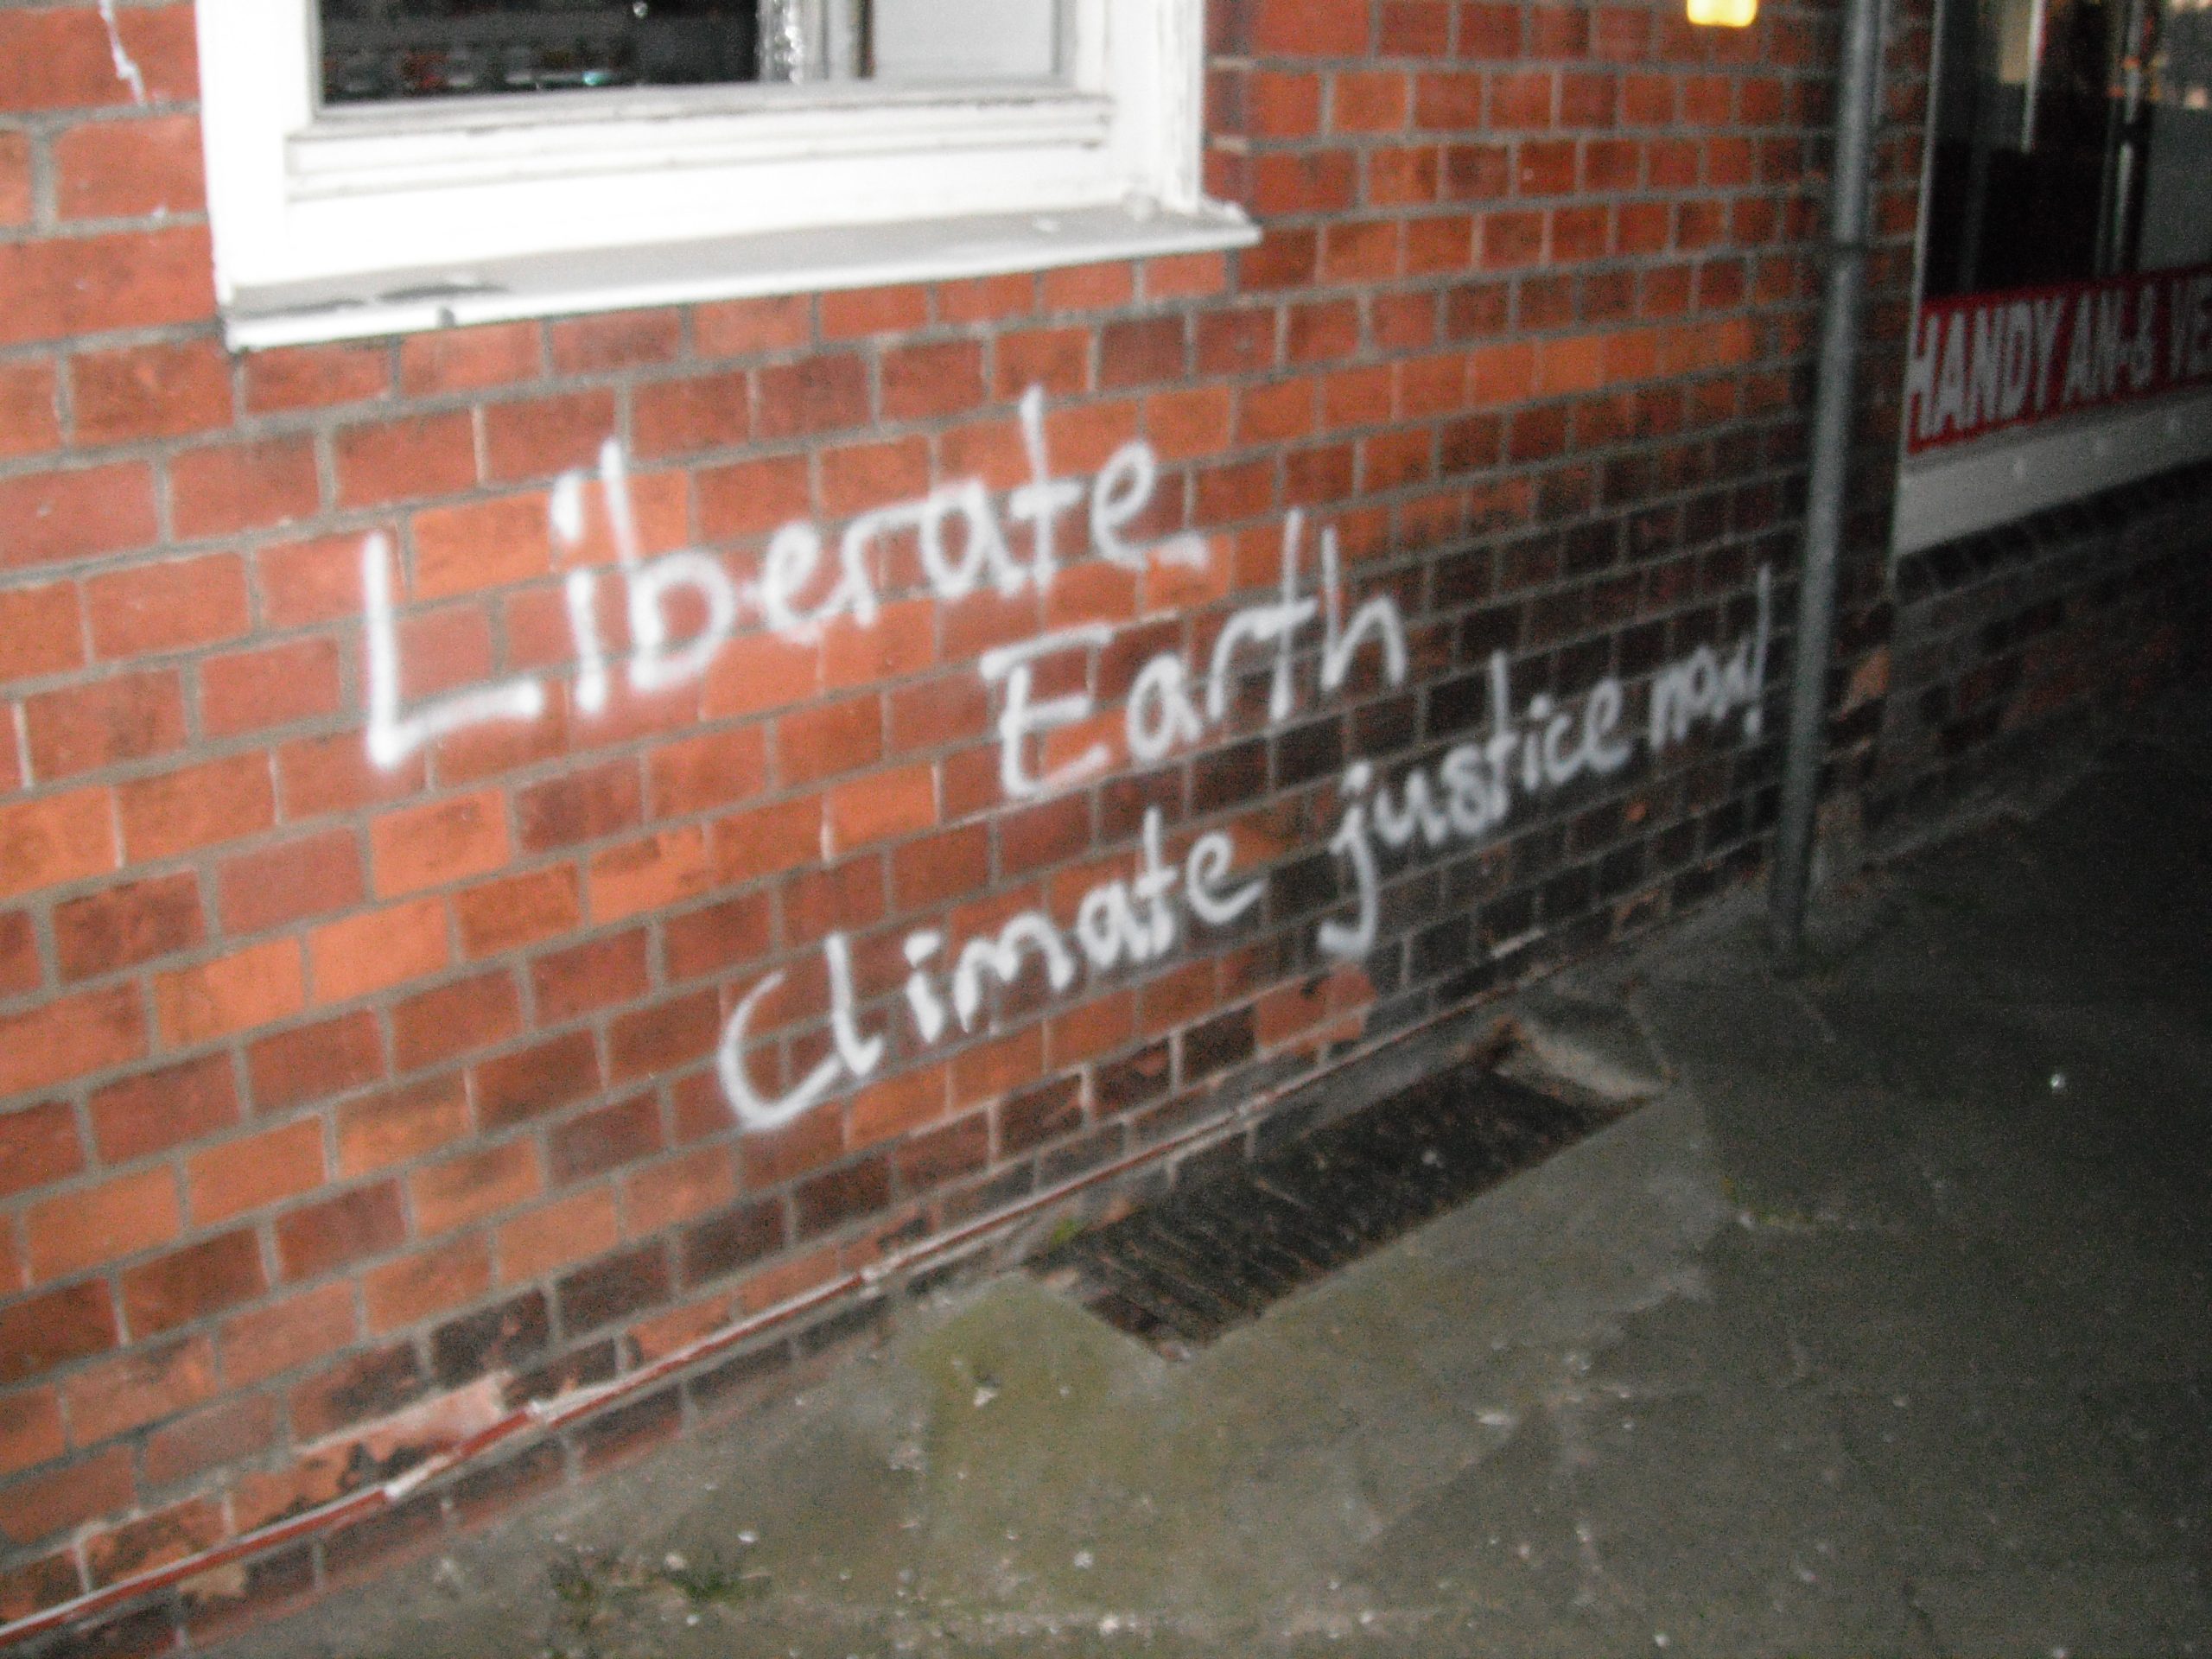 Liberate
Earth
Climate justice now!
HANDY AN-&